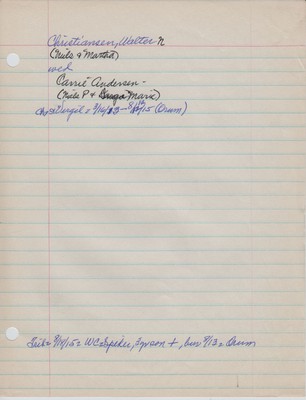 Christiansen, Walter N
(Niels & Martha)
wed
Carrie Andersen -
(Niels P & Marie)
Virgil = 9/16/13 - 8/ /15 (Orum)
Tribe 9/10/15 = WC Spiker, Tyson +, bur 9/13 = Orum